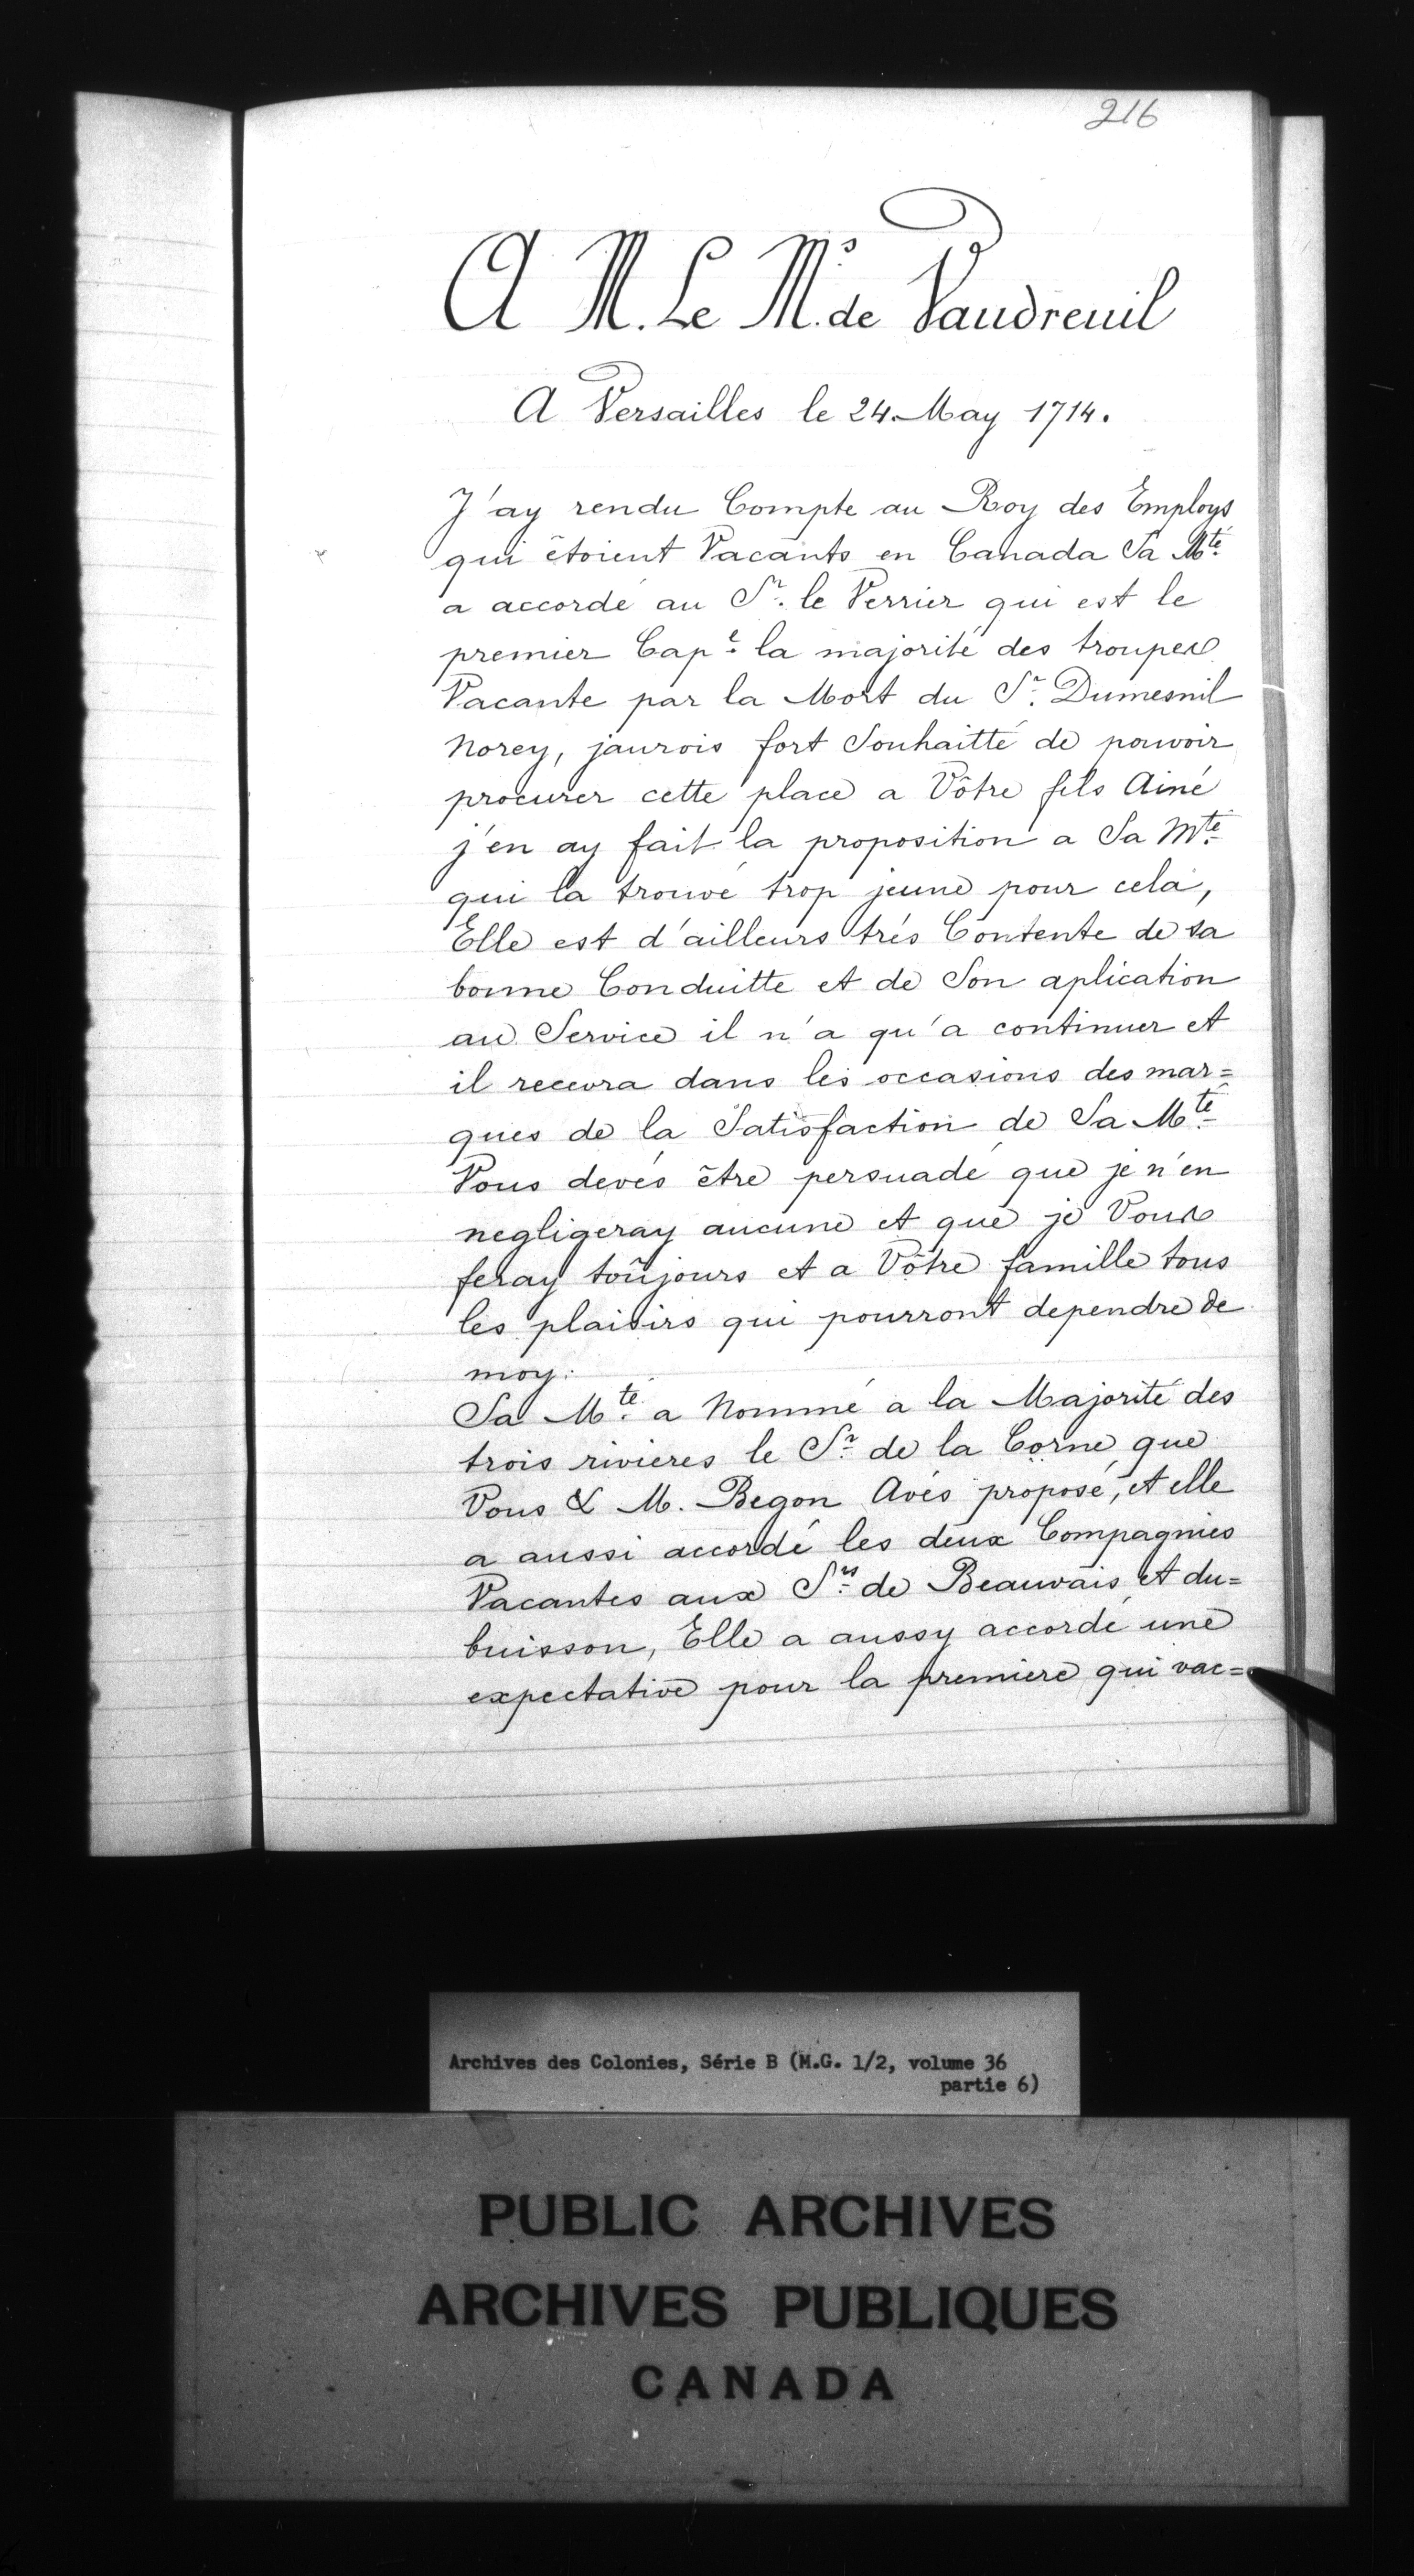 216
A M. Le M.s de Vaudreuil
A Versailles le 24 May 1714.
J'ay rendu Compte au Roy des Employs
qui êtoient Vacants en Canada Sa Mté
a accordé au Sr. le Verrier qui est le
premier Capᵉ la majorité des troupes
Vacante par la Mort du Sr. Dumesnil
Norey, jaurois fort Souhaitté de pouvoir
procurer cette place a Vôtre fils Ainé
j'en ay fait la proposition a Sa Mté
qui la trouvé trop jeune pour cela,
Elle est d'ailleurs trés Contente de sa
bonne Conduitte et de Son aplication
au Service il n'a qu'a continuer et
il recevra dans les occasions des mar=
ques de la Satisfaction de Sa Mté
Vous devés être persuadé que je n'en
negligeray aucune et que je Vous
feray toûjours et a Vôtre famille tous
les plaisirs qui pourront dependre de
moy.
Sa Mté a Nommé a la Majorité des
trois rivieres le Sr. de la Corne que
Vous & M. Begon Avés proposé, et elle
a aussi accordé les deux Compagnies
Vacantes aux Srs de Beauvais et du=
buisson, Elle a aussy accordé une
expectative pour la premiere qui vac=
Archives des Colonies, Série B (M.G. 1/2, volume 36
partie 6)
PUBLIC ARCHIVES
ARCHIVES PUBLIQUES
CANADA